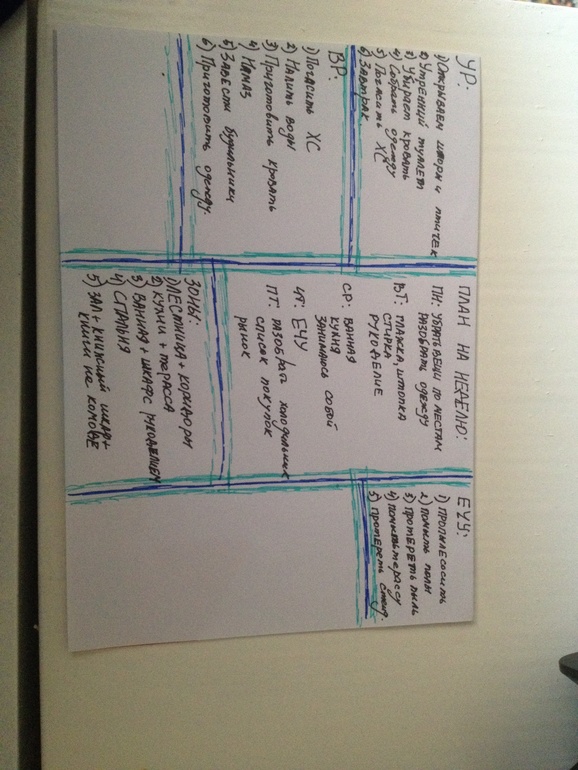 УР:
1) Открываем шторы и птичек
2) Утренний туалет
3) Убирает кровать
4) Собрать одежду
5) Погасить ХС
6) Завтрак.
ВР:
1) Погасить ХС
2) Налить воды
3) Приготовить кровать
4) Намаз
5) Завести будильники
6) Приготовить одежду.
ПЛАН НА НЕДЕЛЮ:
ПН: УБРАТЬ ВЕЩИ ПО МЕСТАМ
РАЗОБРАТЬ ОДЕЖДУ
ВТ: ГЛАЖКА, ШТОПКА
СТИРКА
РУКОДЕЛИЕ
СР: ВАННАЯ
КУХНЯ
ЗАНИМАЮСЬ СОБОЙ
ЧТ: ЕЧУ
ПТ: РАЗОБРАТЬ ХОЛОДИЛЬНИК
СПИСОК ПОКУПОК
РЫНОК
ЗОНЫ:
1) ЛЕСТНИЦА + КОРИДОРЫ
2) КУХНИ + ТЕРАССА
3) ВАННАЯ + ШКАФ С РУКОДЕЛИЕМ
4) СПАЛЬНЯ
5) ЗАЛ + КНИЖНЫЙ ШКАФ +
КНИГИ НА КОМОДЕ
ЕЧУ:
1) ПРОПЫЛЕСОСИТЬ
2) ПОМЫТЬ ПОЛЫ
3) ПРОТЕРЕТЬ ПЫЛЬ
4) ПОМЫТЬ ТЕРАССУ
5) ПРОТЕРЕТЬ